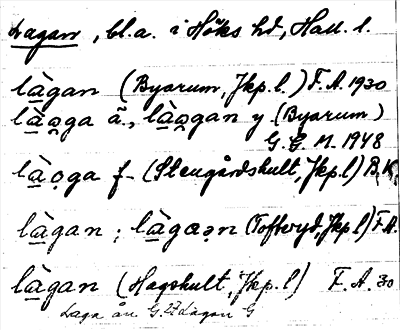 Lagan, bl.a. i Höks hd, Hall. l.
làgan (Byarum, Jkp. l.) F.A. 1930
làǫga å, làǫgan y (Byarum)
G.G. M. 1948
làǫga f- (Stengårdshult, Jkp. l) B.K.
làgan; làgaən (Tofteryd, Jkp l) F.A.
làgan (Hagshult, Jkp. l) F.A. 30
Laga ån G. Lågan G